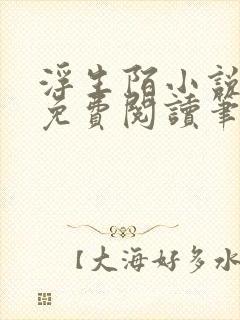 浮生陌小說
免費閱讀筆
【大海好多水